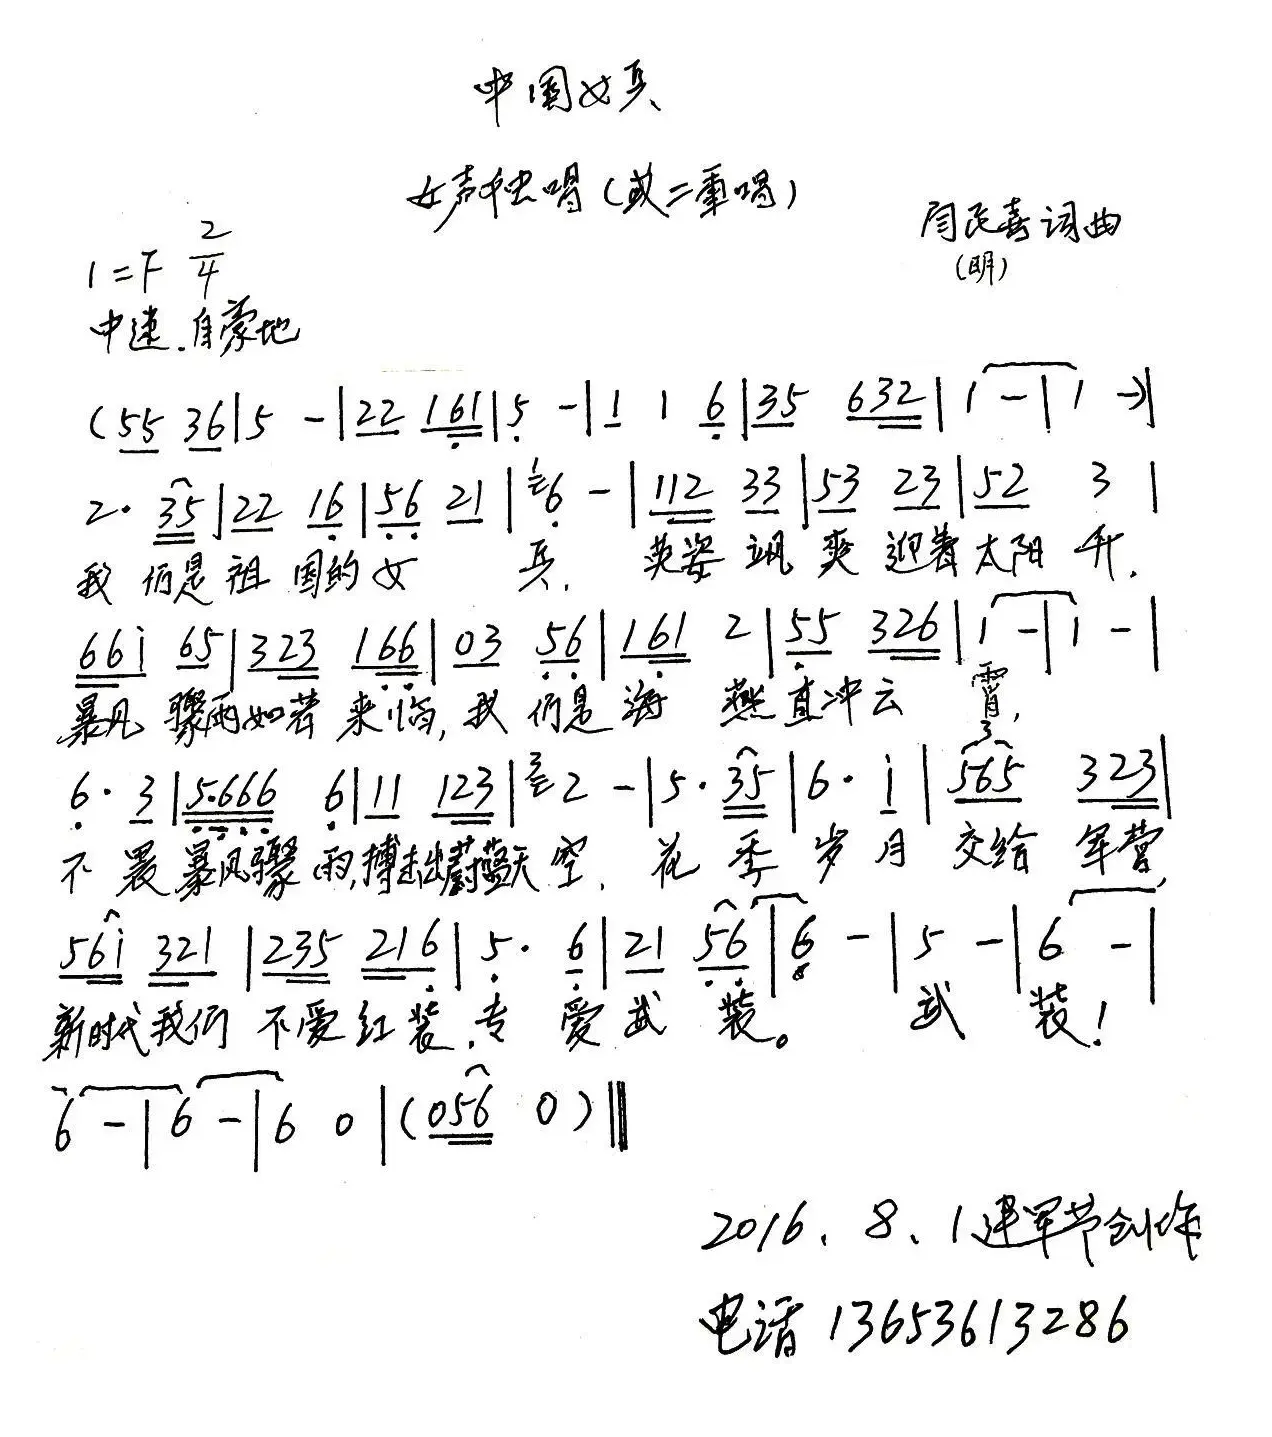 中国女兵
女声独唱(或二重唱)
闫民喜词曲
(明)
1=F 2/4
中速.自豪地
(55 36|5 -|22 161|5 -|1 1 6|35 632|1 -|1 -)|
2· 35|22 16|56 21|16 -|112 33|53 23|52 3|
我们是祖国的女兵.英姿飒爽迎着太阳升.
66i 65|323 166|03 56|161 2|55 326|1 -|1 -|
暴风骤雨如若来临,我们是海燕直冲云霄,
6· 3|5·666 6|11 123|32 -|5· 35|6· i|565 323|
不畏暴风骤雨,搏击出蔚蓝天空.花季岁月交给军营,
56i 321|235 216|5· 6|21 56|6 -|5 -|6 -|
新时代我们不爱红装.专爱武装。武装!
6 -|6 -|6 0|(056 0)‖
2016.8.1建军节创作
电话 13653613286